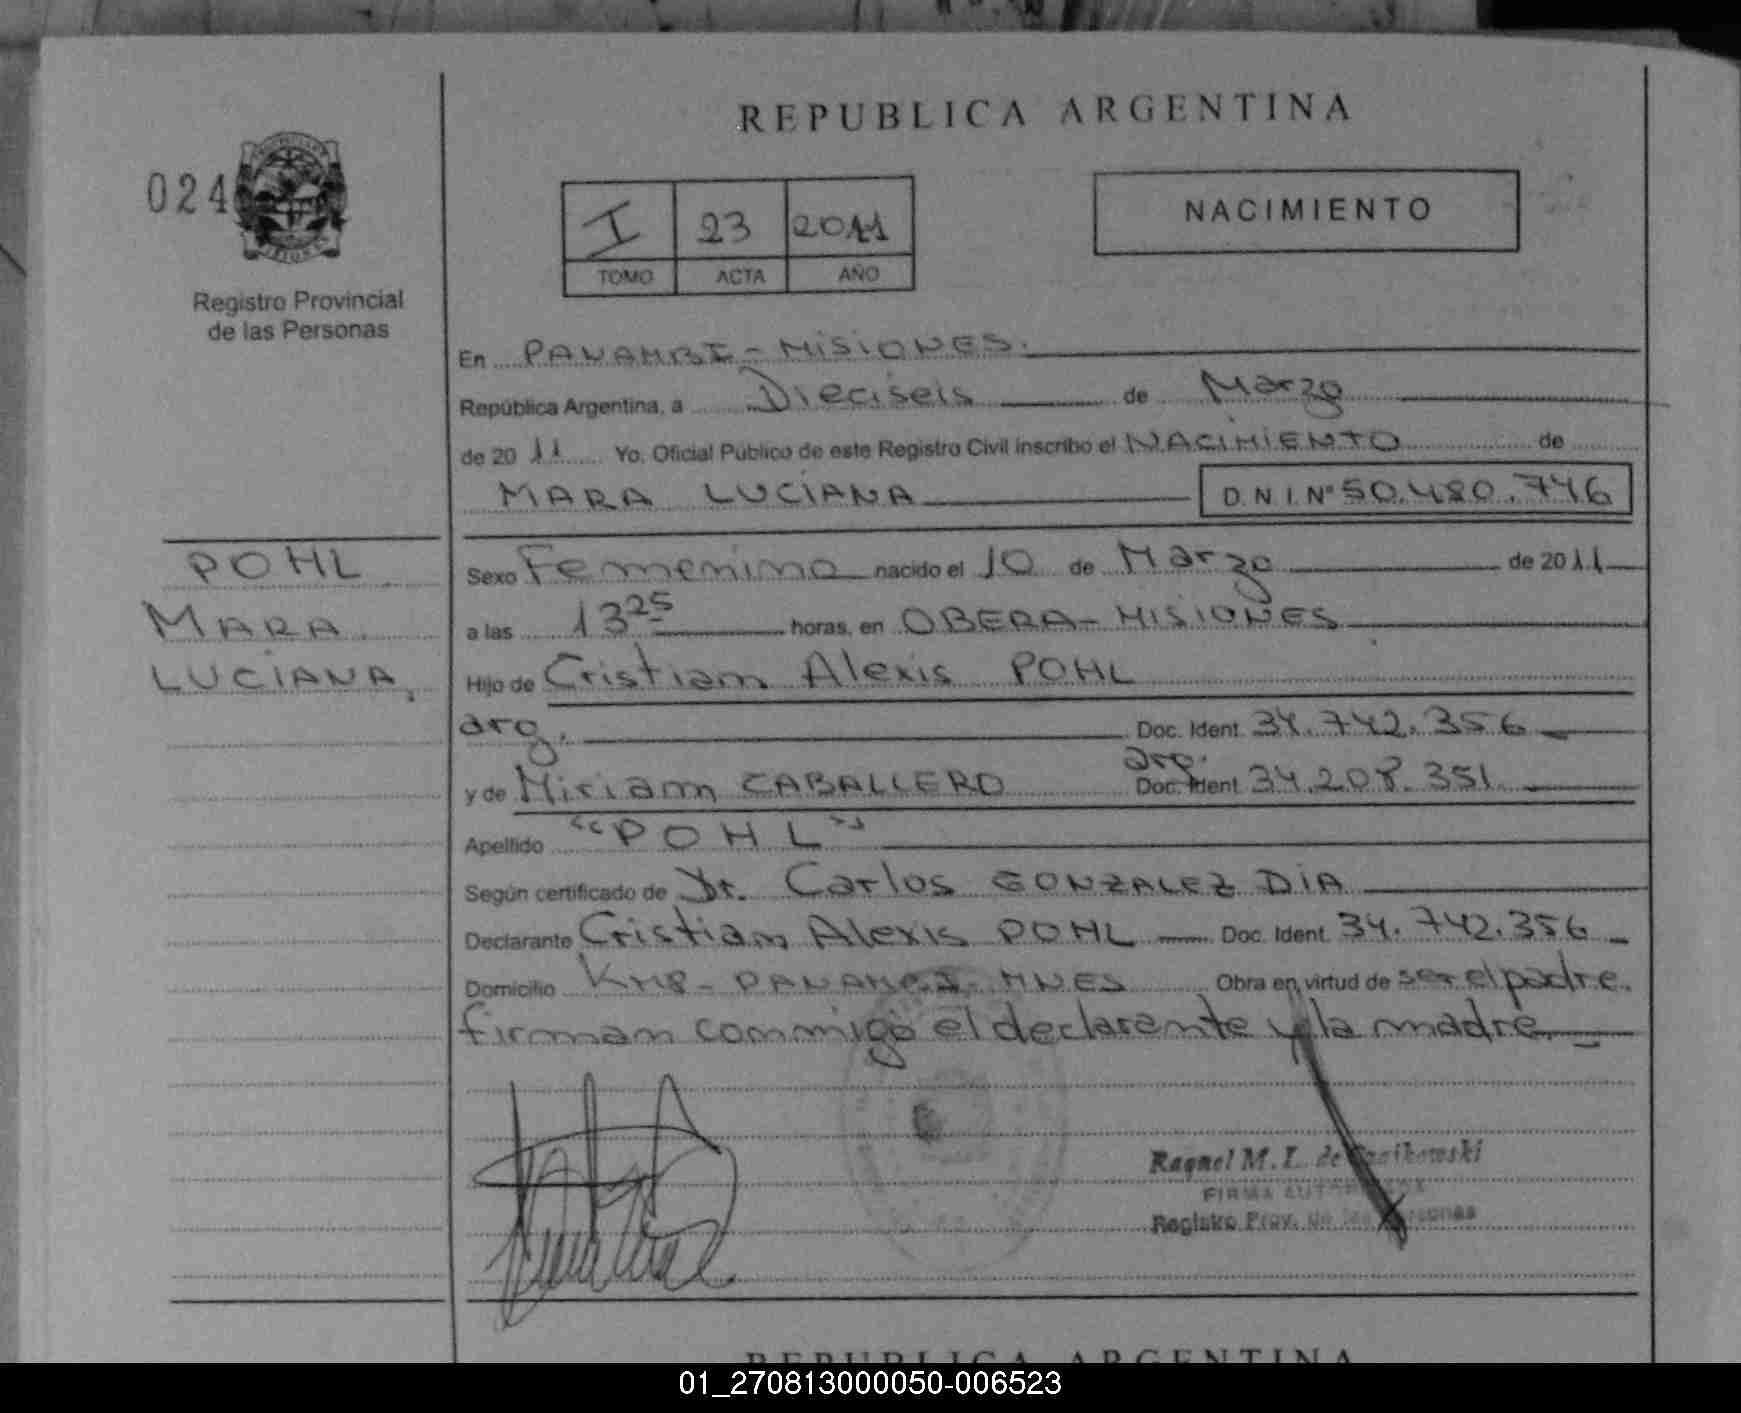 REPUBLICA ARGENTINA
024
I 23 2011
TOMO ACTA AÑO
NACIMIENTO
Registro Provincial
de las Personas
En PANAMBI - MISIONES.
República Argentina, a Dieciseis de Marzo
de 2011 Yo, Oficial Público de este Registro Civil inscribo el NACIMIENTO de
MARA LUCIANA D.N.I. Nº 50.480.746
POHL
MARA
LUCIANA,
Sexo Femenino nacido el 10 de Marzo de 2011
a las 13 25 horas, en OBERA - MISIONES
Hijo de Cristian Alexis POHL
arg. Doc. Ident. 34.742.356
arg.
y de Miriam CABALLERO Doc. Ident. 34.208.351
Apellido "POHL"
Según certificado de Dr. Carlos GONZALEZ DIA
Declarante Cristian Alexis POHL Doc. Ident. 34.742.356
Domicilio Km8 - PANAMBI - MNES Obra en virtud de ser el padre.
firman conmigo el declarante y la madre.
Raquel M. L. de
FIRMA AUTORIZADA
Registro Prov. de las Personas
REPUBLICA ARGENTINA
01_270813000050-006523